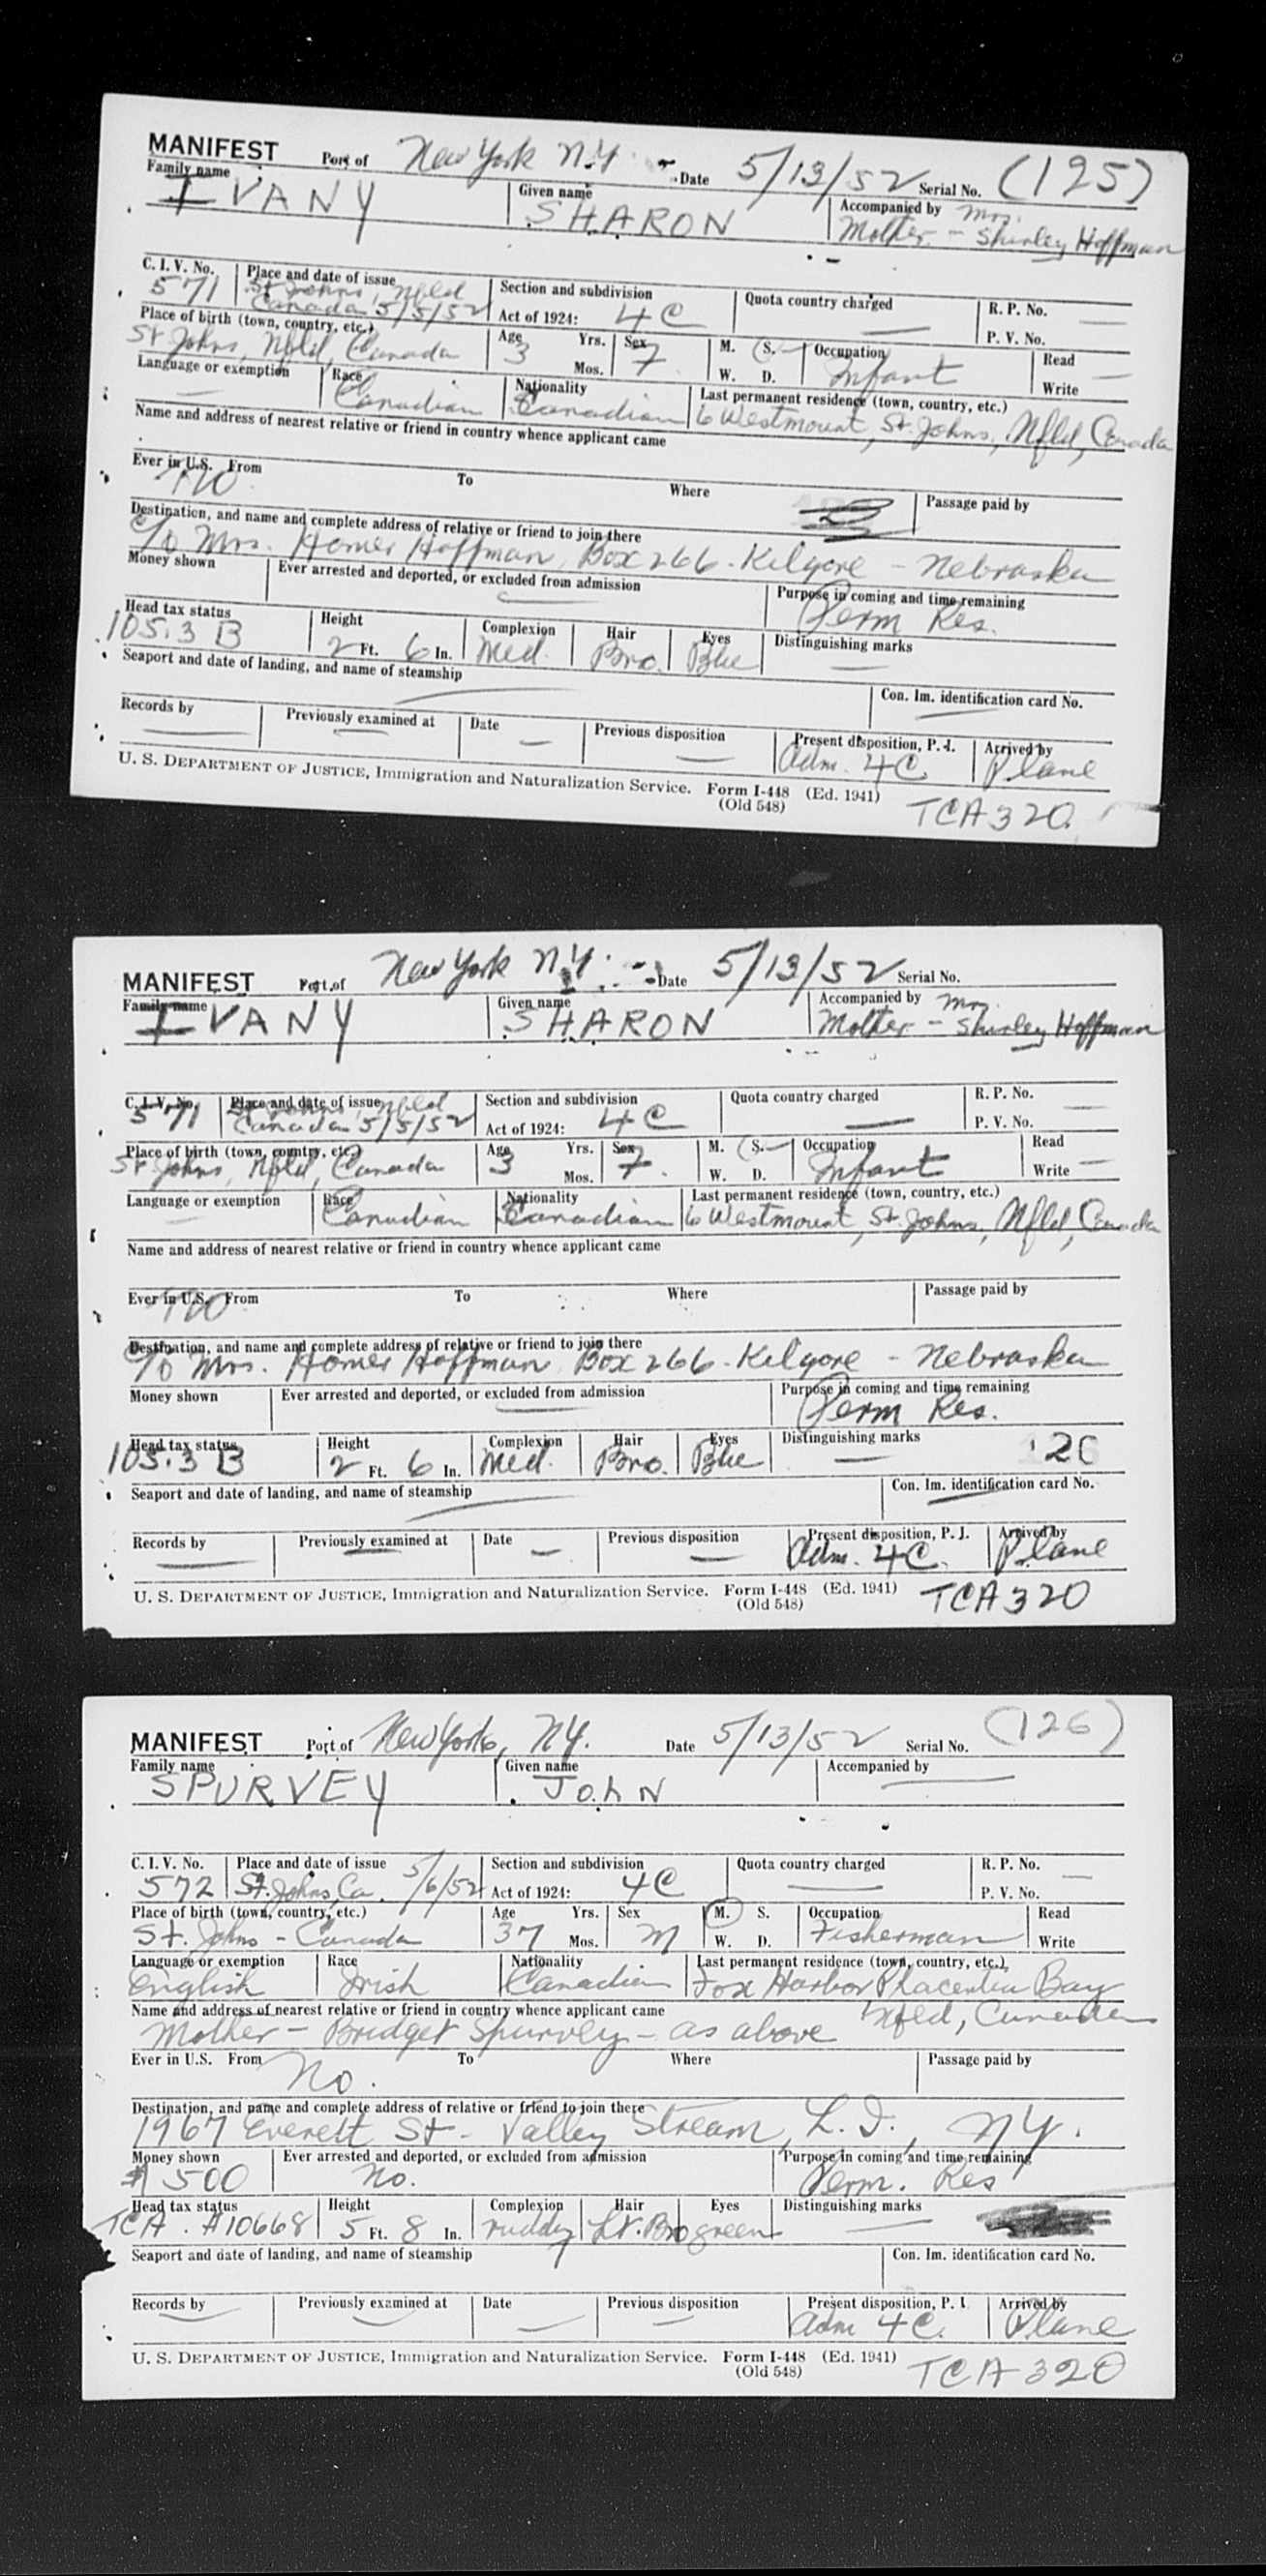 MANIFEST Port of New York N.Y. Date 5/13/52 Serial No. (125)
Family name IVANY Given name SHARON Accompanied by Mrs.
Mother - Shirley Hoffman
C. I. V. No. 571 Place and date of issue St Johns, Nfld Section and subdivision Quota country charged — R. P. No. —
Canada 5/5/52 Act of 1924: 4C P. V. No.
Place of birth (town, country, etc.) Age 3 Yrs. Sex F M. (S.) Occupation Read —
St Johns, Nfld, Canada Mos. W. D. Infant Write
Language or exemption — Race Canadian Nationality Canadian Last permanent residence (town, country, etc.)
6 Westmount, St. Johns, Nfld, Canada
Name and address of nearest relative or friend in country whence applicant came
Ever in U.S. No From To Where Passage paid by
Destination, and name and complete address of relative or friend to join there
C/o Mrs. Homer Hoffman, Box 266 - Kilgore - Nebraska
Money shown Ever arrested and deported, or excluded from admission — Purpose in coming and time remaining
Perm Res.
Head tax status 105.3 B Height 2 Ft. 6 In. Complexion Med. Hair Bro. Eyes Blue Distinguishing marks —
Seaport and date of landing, and name of steamship — Con. Im. identification card No. —
Records by — Previously examined at — Date — Previous disposition — Present disposition, P. I. Adm. 4C Arrived by Plane
U. S. DEPARTMENT OF JUSTICE, Immigration and Naturalization Service. Form I-448 (Ed. 1941) TCA 320
(Old 548)
MANIFEST Port of New York N.Y. Date 5/13/52 Serial No.
Family name IVANY Given name SHARON Accompanied by Mrs.
Mother - Shirley Hoffman
C. I. V. No. 571 Place and date of issue St Johns, Nfld Section and subdivision Quota country charged — R. P. No. —
Canada 5/5/52 Act of 1924: 4C P. V. No.
Place of birth (town, country, etc.) Age 3 Yrs. Sex F M. (S.) Occupation Read
St Johns, Nfld, Canada Mos. W. D. Infant Write —
Language or exemption — Race Canadian Nationality Canadian Last permanent residence (town, country, etc.)
6 Westmount, St. Johns, Nfld, Canada
Name and address of nearest relative or friend in country whence applicant came
Ever in U.S. No From To Where Passage paid by
Destination, and name and complete address of relative or friend to join there
C/o Mrs. Homer Hoffman, Box 266 - Kilgore - Nebraska
Money shown Ever arrested and deported, or excluded from admission — Purpose in coming and time remaining
Perm Res.
Head tax status 105.3 B Height 2 Ft. 6 In. Complexion Med. Hair Bro. Eyes Blue Distinguishing marks —
Seaport and date of landing, and name of steamship — Con. Im. identification card No. —
Records by — Previously examined at — Date — Previous disposition — Present disposition, P. I. Adm. 4C. Arrived by Plane
U. S. DEPARTMENT OF JUSTICE, Immigration and Naturalization Service. Form I-448 (Ed. 1941) TCA 320
(Old 548)
MANIFEST Port of New York, NY. Date 5/13/52 Serial No. (126)
Family name SPURVEY Given name JOHN Accompanied by —
C. I. V. No. 572 Place and date of issue St. Johns, Ca. 5/6/52 Section and subdivision Quota country charged — R. P. No. —
Act of 1924: 4C P. V. No.
Place of birth (town, country, etc.) Age 37 Yrs. Sex M (M.) S. Occupation Read
St. Johns - Canada Mos. W. D. Fisherman Write
Language or exemption English Race Irish Nationality Canadian Last permanent residence (town, country, etc.)
Fox Harbor Placentia Bay
Nfld, Canada
Name and address of nearest relative or friend in country whence applicant came
Mother - Bridget Spurvey - as above
Ever in U.S. From No. To Where Passage paid by
Destination, and name and complete address of relative or friend to join there
1967 Everett St - Valley Stream, L.I., NY.
Money shown $500 Ever arrested and deported, or excluded from admission No. Purpose in coming and time remaining
Perm. Res
Head tax status TCA. #10668 Height 5 Ft. 8 In. Complexion ruddy Hair Lt. Bro Eyes green Distinguishing marks —
Seaport and date of landing, and name of steamship Con. Im. identification card No.
Records by — Previously examined at — Date — Previous disposition — Present disposition, P. I. Adm 4C. Arrived by Plane
U. S. DEPARTMENT OF JUSTICE, Immigration and Naturalization Service. Form I-448 (Ed. 1941) TCA 320
(Old 548)